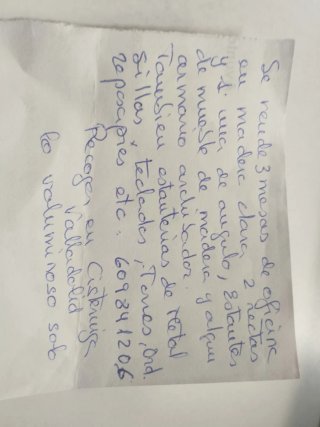 Se vende 3 mesas de oficina
en madera clara 2 rectas
y 1 una de angulo, Estantes
de mueble de madera y algun
armario archivador.
Tambien estanterias de metal
Sillas, teclados, Torres, Ord.
reposapies etc. 609341206
Recoger en Cisterniga
Valladolid
lo voluminoso solo